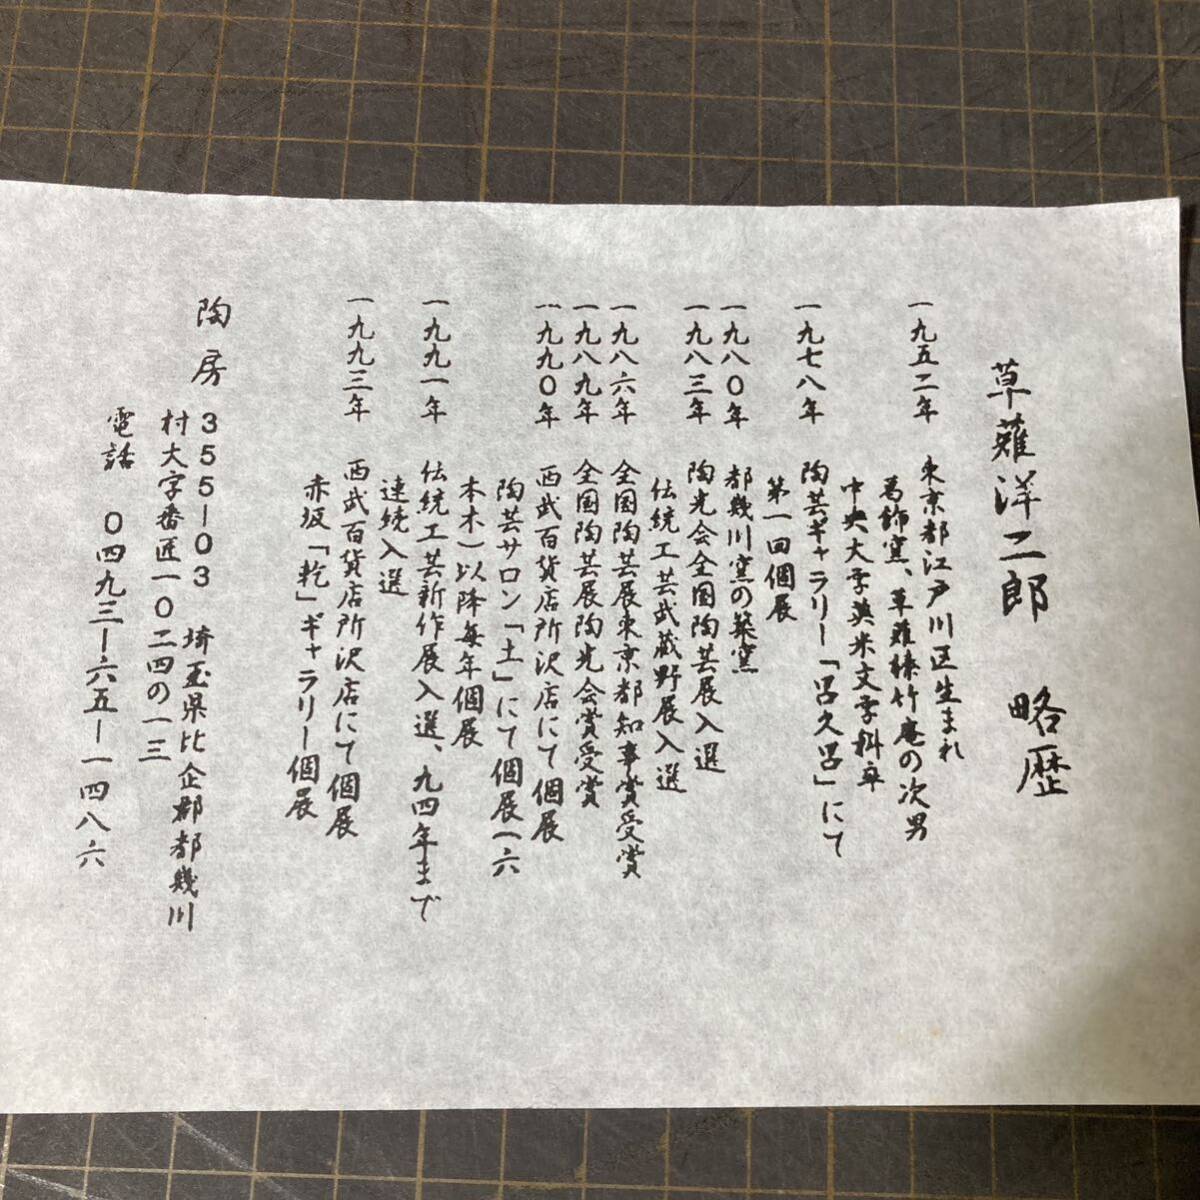 草薙洋二郎 略歴
一九五二年 東京都江戸川区生まれ
葛飾窯、草薙棒竹庵の次男
中央大学英米文学科卒
一九七八年 陶芸ギャラリー「呂久呂」にて
第一回個展
一九八〇年 都幾川窯の築窯
一九八三年 陶光会全国陶芸展入選
伝統工芸武蔵野展入選
一九八六年 全国陶芸展東京都知事賞受賞
一九八九年 全国陶芸展陶光会賞受賞
一九九〇年 西武百貨店所沢店にて個展
陶芸サロン「土」にて個展（六
本木）以降毎年個展
一九九一年 伝統工芸新作展入選、九四年まで
連続入選
一九九三年 西武百貨店所沢店にて個展
赤坂「乾」ギャラリー個展
陶房 355-03 埼玉県比企郡都幾川
村大字番匠一〇二四の一三
電話 〇四九三-六五-一四八六